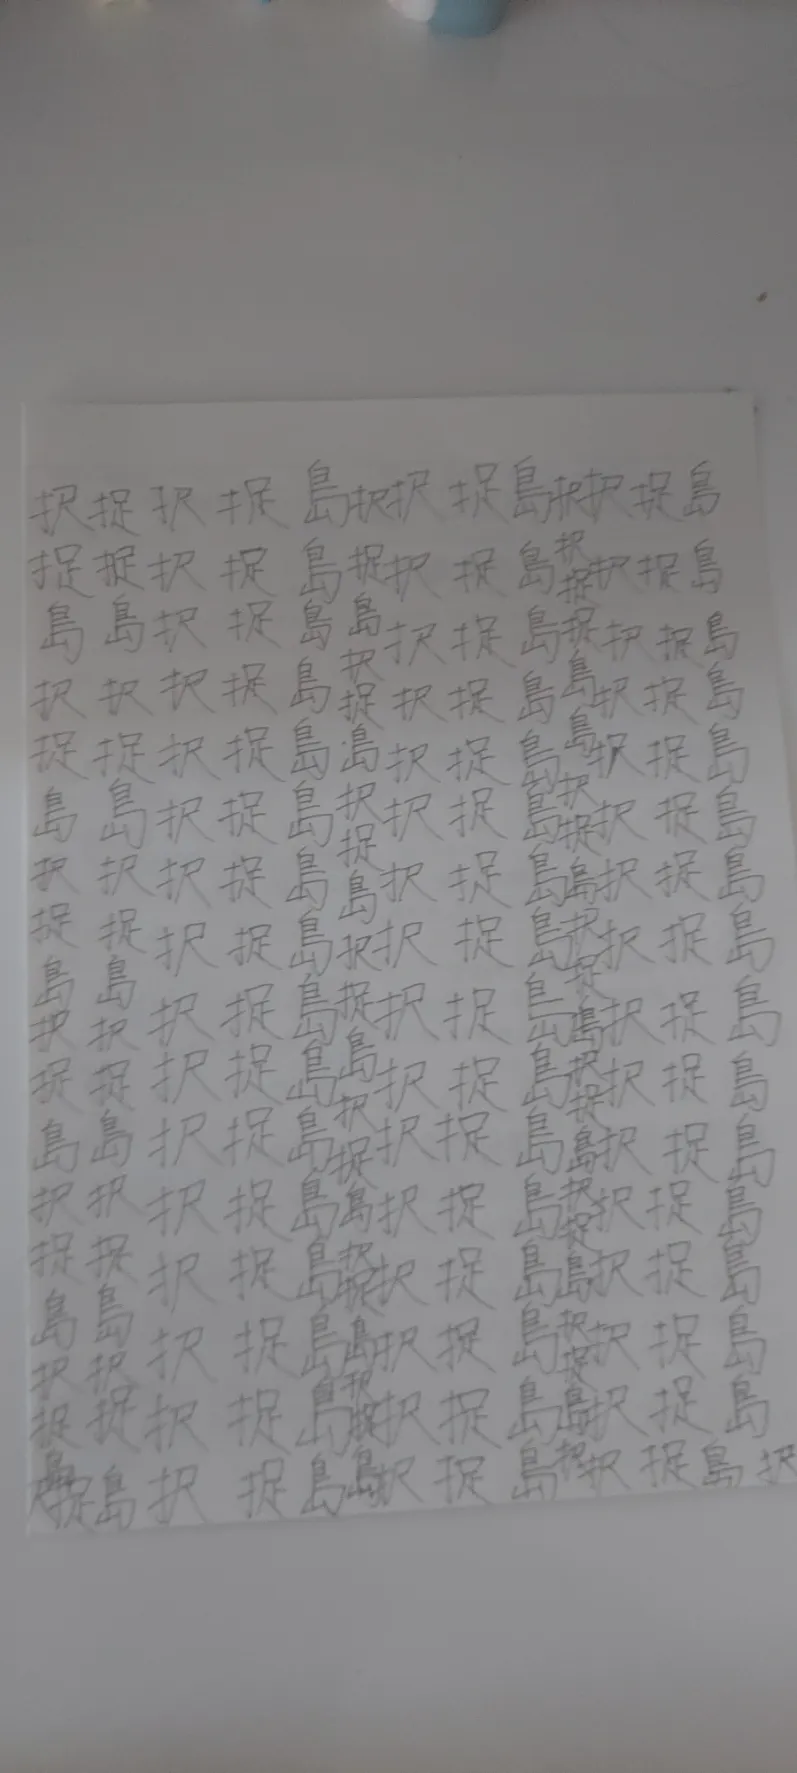 択捉択捉島択択捉島択択捉島
捉捉択捉島捉択捉島択捉択捉島
島島択捉島島択捉島捉択捉島
択択択捉島択捉択捉島島択捉島
捉捉択捉島島択捉島島択捉島
島島択捉島択捉択捉島択捉択捉島
択択択捉島島択捉島島択捉島
捉捉択捉島択択捉島択捉択捉島
島島択捉島捉択捉島島択捉島
択択
捉捉択捉島島択捉島択捉択捉島
島島択捉島択捉択捉島島択捉島
択択択捉島島択捉島択捉択捉島
捉捉択捉島択捉択捉島島択捉島
島島択捉島島択捉島択捉択捉島
択択
捉捉択捉島択捉択捉島島択捉島
島捉島択捉島島択捉島択択捉島択